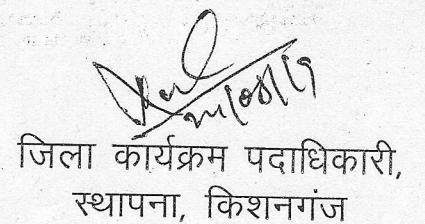 जिला कार्यक्रम पदाधिकारी,
स्थापना, किशनगंज